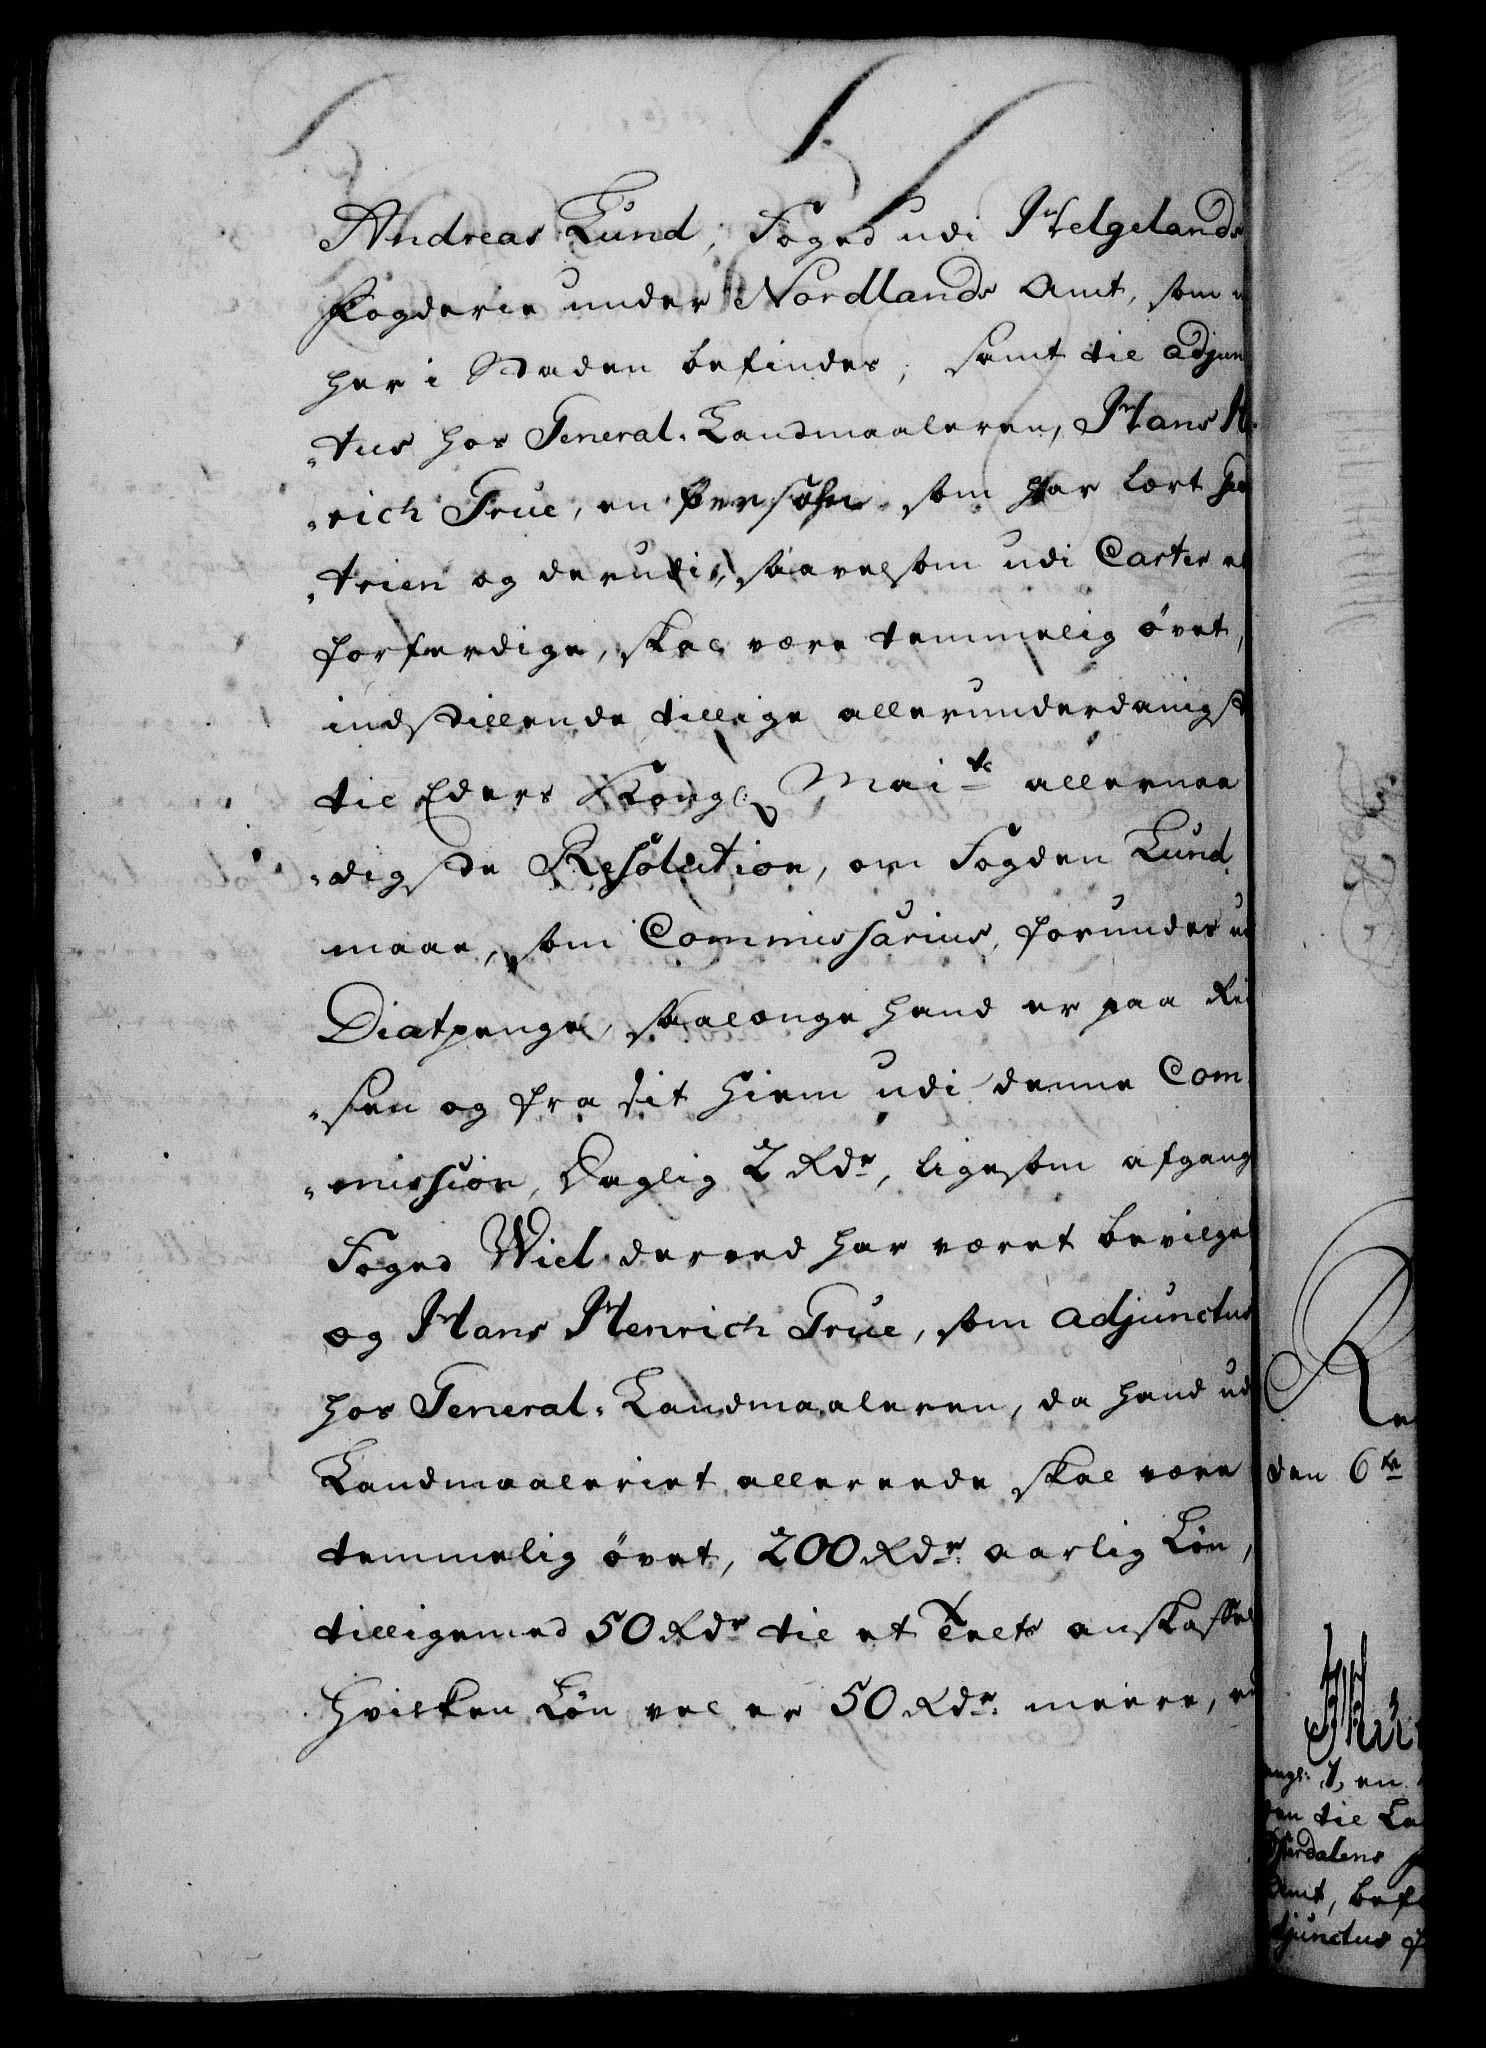 Andreas Lund, Foged udi Helgelands
Fogderie under Nordlands Amt, som
her i Staden befindes, samt til Adjun
„tus hos General-Landmaaleren, Hans H
„rich Truе, en Persohn som har lært
„trien og derudi, saavelsom udi Carter
forferdige, skal være temmelig øvet,
indstillende tillige allerunderdanigst
til Eders Kongl: Maits allernaa
„digste Resolution, om Fogden Lund
maae, som Commissarius, forundes
Diætpenge, saalænge hand er paa Rei
„sen og fra sit Hiem udi denne Com
„mission, Daglig 2 Rdr, ligesom afgang
Foged Wiel derved har været bevilge
og Hans Henrich True, som Adjunctus
hos General-Landmaaleren, da hand ud
Landmaaleriet allereede skal være
temmelig øvet, 200 Rdr: aarlig Løn,
tilligemed 50 Rdr til et Telts anskaffel
Hvilken Løn vel er 50 Rdr: meere,
den 6te
en
den til La
Østerdalens
Amt, bef
djunctus